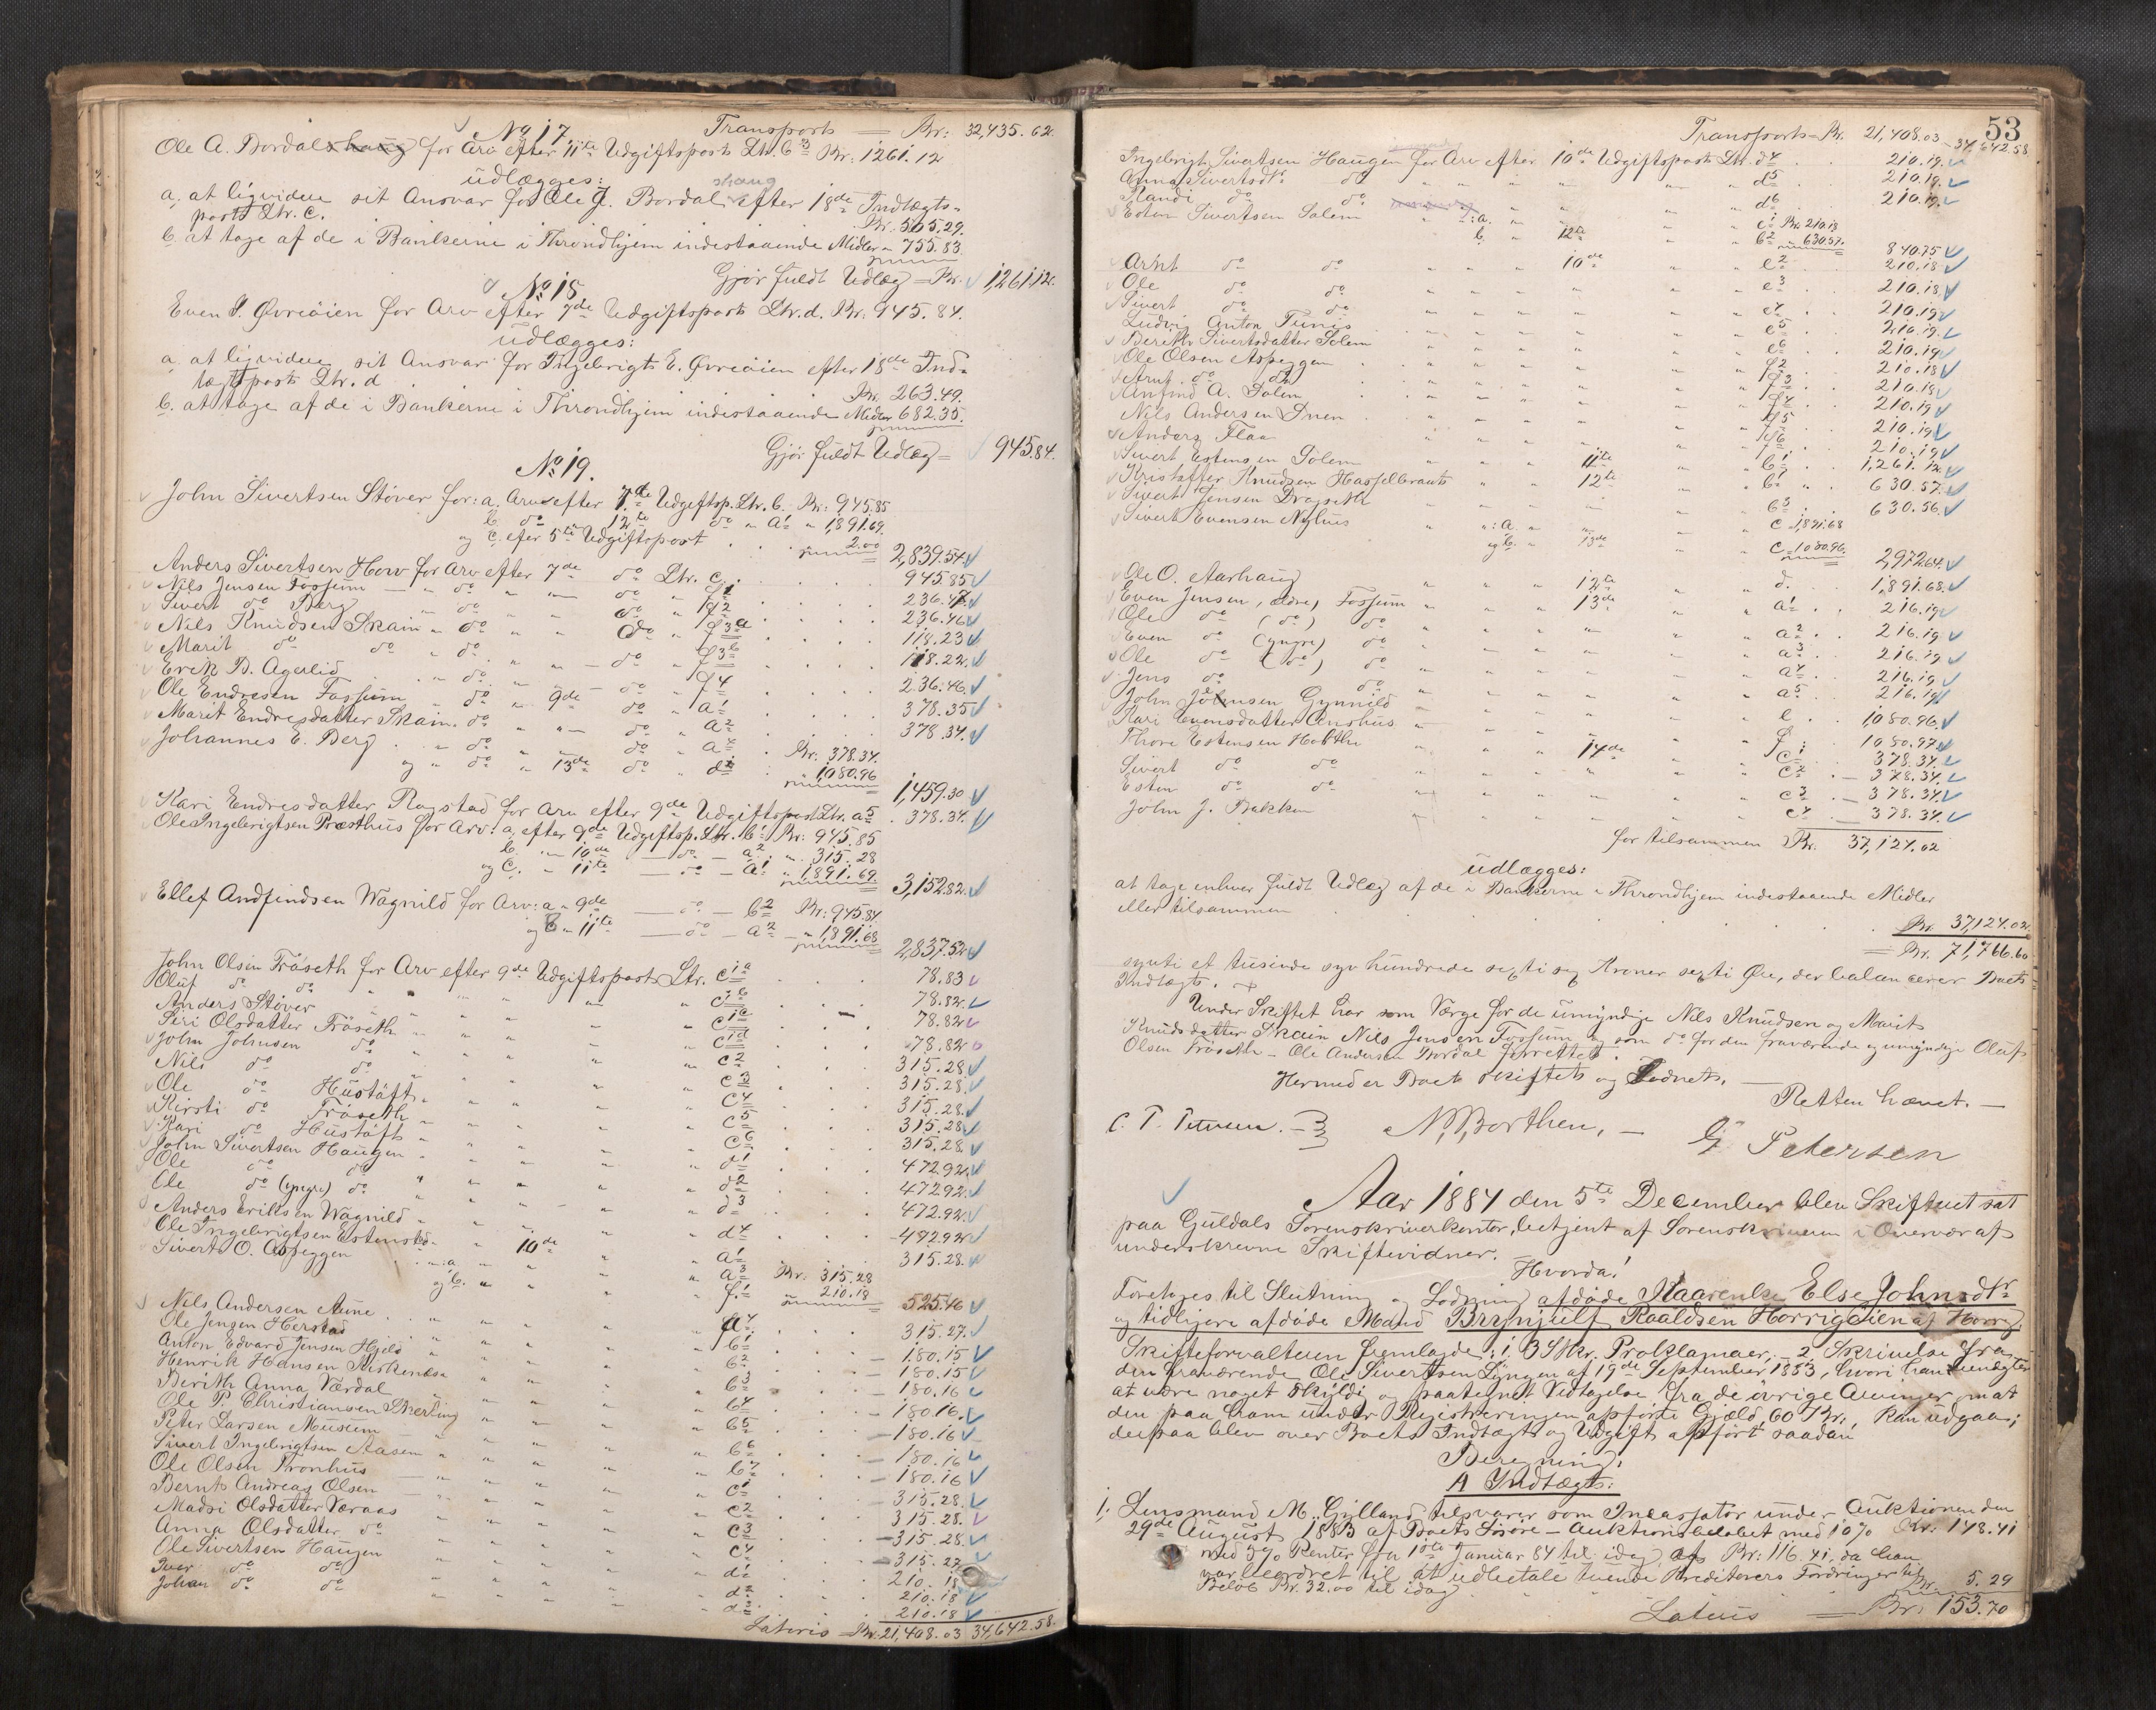 Transport = Kr: 32,435.62.
No 17.
Ole A. Bordalshaug for Arv efter 11te Udgiftspost Ltr. b3 Kr: 1261.12
udlægges:
a, at ligvidere sit Ansvar for Ole J. Bordalshaug efter 18de Indtægts-
post Ltr. c. Kr. 505.29.
b, at tage af de i Bankerne i Throndhjem indestaaende Midler " 755.83
Gjør fuldt Udlæg = Kr. 1,261.12.
No 18.
Even I. Øvreøien for Arv efter 7de Udgiftspost Ltr. d. Kr: 945.84.
udlægges:
a, at ligvidere sit Ansvar for Ingebrigt E. Øvreøien efter 18de Ind-
tægtspost Ltr. d Kr. 263.49.
b. at tage af de i Bankerne i Throndhjem indestaaende Midler 682.35.
Gjør fuldt Udlæg = 945.84.
No 19.
John Sivertsen Støver for: a. Arv efter 7de Udgiftsp. Ltr. b. Kr: 945.85
b. do 12te do " a1 " 1,891.69.
og c. efter 5te Udgiftspost . . . 2.00 2,839.54.
Anders Sivertsen Hov for Arv efter 7de do Ltr. c. . . 945.85
Nils Jensen Fossum — do " " do " f1 . . 236.47.
Sivert do Berg " do " " do " f2 . . 236.46
Nils Knudsen Skain " do " " do " f3a . . 118.23
Marit do do " do " " do " f3b . . 118.22.
Erik B. Agerlid " do " " do " f4 . . 236.46.
Ole Endresen Fossum " do " 9de do " a1 . . 378.35
Marit Endresdatter Skain. do " " do " a2 . . 378.34.
Johannes E. Berg . " do " " do " a4 . Kr: 378.34.
og " do " 13de do " d . " 1080.96 1,459.30
Kari Endresdatter Rogstad for Arv efter 9de Udgiftspost Ltr. a5 . 378.34.
Ole Ingebrigtsen Præsthus for Arv: a, efter 9de Udgiftsp. Ltr. b1 Kr: 945.85
b. " 10de — do — a2 " 315.28
og c. " 11te — do — a1 " 1,891.69. 3,152.82.
Ellef Andfindsen Wagnild for Arv: a " 9de — do — b2 Kr: 945.84.
og b " 11te — do — a2 — " 1,891.68 2,837.52
John Olsen Frøseth for Arv efter 9de Udgiftspost Ltr. c1a . . . 78.83
Oluf do do " " " " " c1b . . . 78.82.
Anders Støver " " " " " c1c . . . 78.82
Siri Olsdatter Frøseth " " " " " c1d . . . 78.82
John Johnsen do " " " " " c2 . . . 315.28
Nils do do " " " " " c3 . . . 315.28
Ole do Hustøft " " " " " c4 . . . 315.28.
Kirsti do Frøseth " " " " " c5 . . . 315.28
Kari do Hustøft " " " " " c6 . . . 315.28.
John Sivertsen Haugen " " " " " d1 . . . 472.92.
Ole do do " " " " " d2 . . . 472.92.
Ole do (yngre) do " " " " " d3 . . . 472.92.
Anders Eriksen Wagnild " " " " " d4 . . . 472.92
Ole Ingebrigtsen Estenstad " " 10de " " a1 . . . 315.28.
Sivert O. Aspeggen . . " : a " " " " a3 Kr: 315.28
og b. " " " " f1 " 210.18 525.46
Nils Andersen Aune . . " " " " " a4 . . . 315.27.
Ole Jensen Herstad " " " " " b1 . . . 180.15
Anton Edvard Jensen Hjeld " " " " " b2 . . . 180.15
Henrik Hansen " " " " " b3 . . . 180.16
Berith Anna Værdal " " " " " b4 . . . 180.16.
Ole P. Christiansen " " " " " b5 . . . 180.16
Peter Larsen Museum " " " " " b6 . . . 180.16
Sivert Ingebrigtsen Aasen " " " " " b7 . . . 180.16
Ole Olsen Tronhus " " " " " c1 . . . 315.28.
Bernt Andreas Olsen " " " " " c2 . . . 315.28.
Madsi Olsdatter Væraas " " " " " c3 . . . 315.28.
Anna Olsdatter do " " " " " c4 . . . 315.27
Ole Sivertsen Haugen " " " " " d1 . . . 210.18
Iver do do " " " " " d2 . . . 210.18
Johan do do " " " " " d3 . . . 210.18
Lateris = Kr. 21,408.03 34,642.58.
53
Transport = Kr. 21,408.03 — 34,642.58
Ingebrigt Sivertsen Haugen for Arv efter 10de Udgiftspost Ltr. d4 . . 210.19.
Anna Sivertsdtr do " " " " d5 . . 210.19.
Randi do do " " " " d6 . . 210.19.
Esten Sivertsen Solem " : a. " " " e1 Kr. 210.18
b. " 12te " b2 " 630.57. 840.75
Arnt do do " " 10de " e2 . . 210.18
Ole do do " " " " e3 . . 210.18
Sivert do do " " " " e4 . . 210.19
Ludvig Anton Tunis " " " " e5 . . 210.19.
Berith Sivertsdatter Solem " " " " e6 . . 210.19
Ole Olsen Aspeggen " " " " f2 . . 210.18
Arnt do do " " " " f3 . . 210.18
Anfind A. Solem " " " " f4 . . 210.19
Nils Andersen Duen " " " " f5 . . 210.19
Anders Flaa " " " " f6 . . 210.19
Sivert Estensen Solem " " 11te " b1 . . 1,261.12.
Kristoffer Knudsen Hasselbrant " " 12te " b1 . . 630.57.
Sivert Jensen Dragseth " " " " b3 . . 630.56.
Sivert Evensen Nyhus " : a. " " " c " 1,891.68
og b. " 13de " c " 1080.96. 2,972.64.
Ole O. Aarhaug " " 12te " d. . . 1,891.68.
Even Jensen, (ældre) Fossum " " 13de " a1 . . 216.19
Ole do (do) do " " " " a2 . . 216.19
Even do (yngre) do " " " " a3 . . 216.19
Ole do (do) do " " " " a4 . . 216.19
Jens do do " " " " a5 . . 216.19
John Johnsen Gynnild " " " " e . . 1080.96.
Kari Evensdatter Aushus " " " " f . . 1080.97.
Thore Estensen Hobthe " " 14de " c1 . . 378.34.
Sivert do do " " " " c2 . — 378.34.
Esten do do " " " " c3 . — 378.34.
John J. Bakken " " " " c4 . — 378.34.
for tilsammen Kr. 37,124.02
udlægges:
at tage enhver fuldt Udlæg af de i Bankerne i Throndhjem indestaaende Midler
eller tilsammen . . . . . . . Kr. 37,124.02
= Kr. 71,766.60
sytti et tusinde syv hundrede sexti sex Kroner sexti Øre, der balancerer Boets
Indtægt.
Under Skiftet har som Værge for de umyndige Nils Knudsen og Marit
Knudsdatter Skain Nils Jensen Fossum og som do for den fraværende og umyndige Oluf
Olsen Frøseth — Ole Andersen Bordal forrettet.
Hermed er Boet skiftet og Lodnet. —
Retten hævet. —
C. T. Petersen. — N. Borthen. — G Petersen
Aar 1884 den 5te December blev Skifteret sat
paa Guldals Sorenskriverkontor, betjent af Sorenskriveren i Overvær af
underskrevne Skiftevidner.
Hvorda!
Foretoges til Slutning og Lodning afdøde Kaarenke Else Johnsdtr
og tidligere afdøde Mand Brynjulf Roaldsen Horrigøien af Horrig.
Skifteforvalteren fremlagde: 1. 3 Stkr. Proklamaer — 2 Skrivelse fra
den fraværende Ole Sivertsen Lyngen af 19de September 1883, hvori han benægter
at være noget skyldig og paategnet Vedtagelse fra de øvrige Arvinger om at
den paa ham under Registreringen opførte Gjæld, 60 Kr., kan udgaa;
derpaa blev over Boets Indtægt og Udgift opført saadan
Beregning:
A Indtægt:
1, Lensmand M. Gylland tilsvarer som Incassator under Auktionen den
29de August 1883 af Boets Løsøre — Auktionsbeløbet med 10% Kr: 148.41
med 5% Renter fra 1ste Januar 84 til idag af Kr: 116.41, da han
var beordret til at udbetale tvende Kreditorers Fordringer til
Beløb Kr. 32.00 til idag . . . Kr. 5.29
Lateris = Kr. 153.70